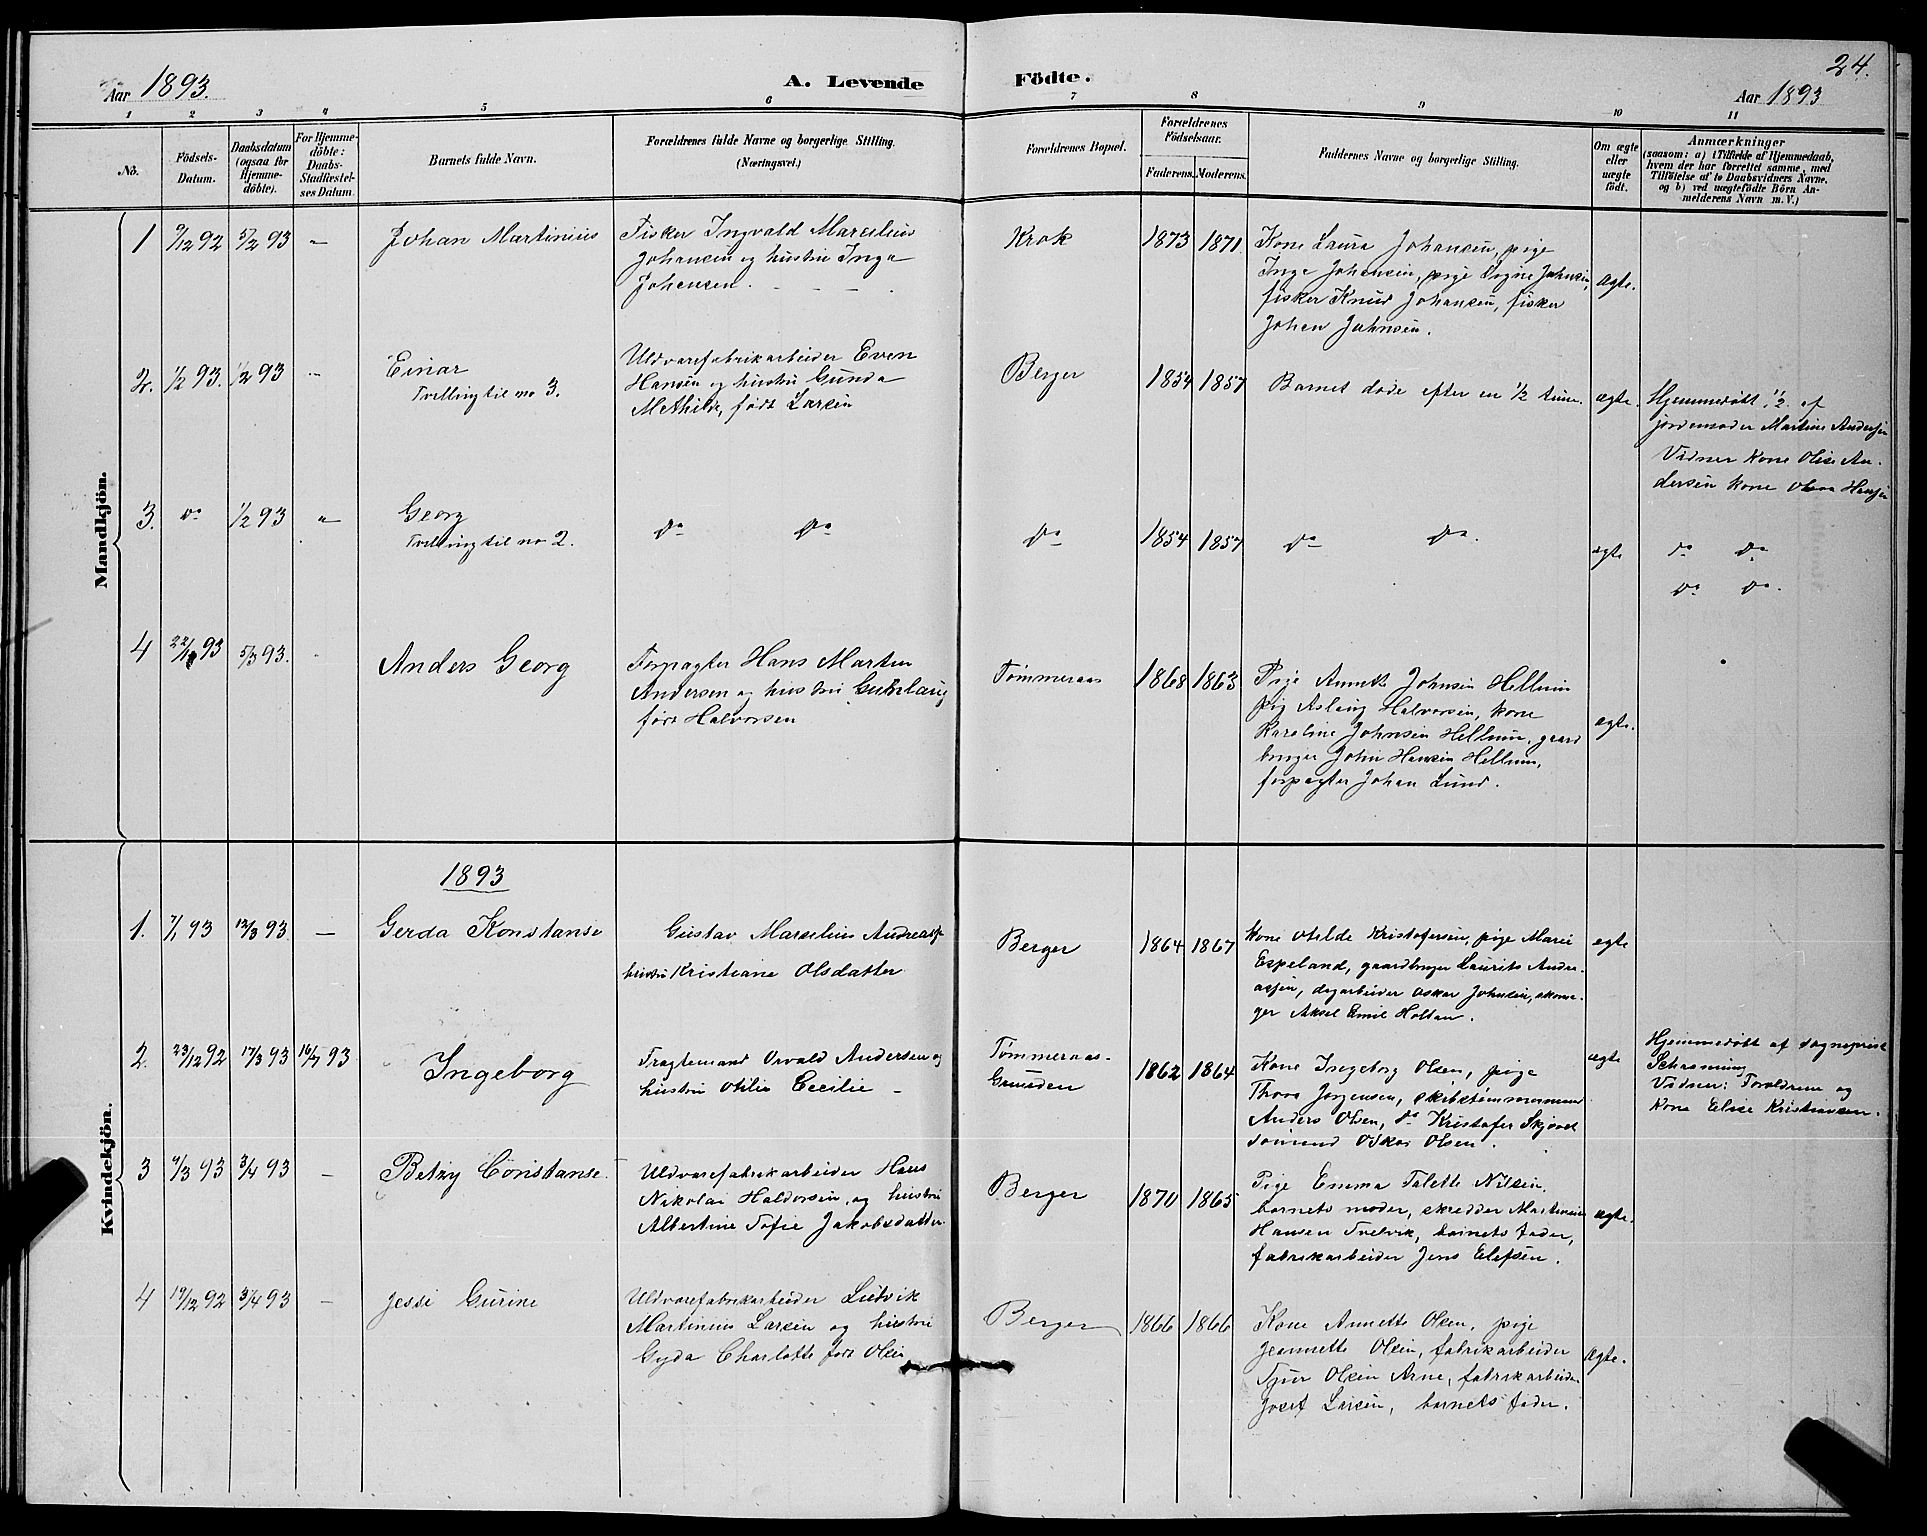 24.
Aar 1893.
A. Levende Födte.
Aar 1893
1 2 3 4 5 6 7 8 9 10 11
No.
Födsels-
Datum.
Daabsdatum
(ogsaa for
Hjemme-
döbte).
For Hjemme-
döbte:
Daabs-
Stadfæstel-
ses Datum.
Barnets fulde Navn.
Forældrenes fulde Navne og borgerlige Stilling.
(Næringsvei.)
Forældrenes Bopæl.
Forældrenes
Födselsaar.
Faderens. Moderens.
Faddernes Navne og borgerlige Stilling.
Om ægte
eller
uægte
födt.
Anmærkninger
(saasom: a) i Tilfælde af Hjemmedaab,
hvem der har forrettet samme, med
Tilföielse af to Daabsvidners Navne,
og b) ved uægtefödte Börn An-
melderens Navn m. V.)
Mandkjön.
1 9/12 92 5/2 93 –
Johan Martinius
Fisker Ingvald Marselius
Johansen og hustru Inga
Johansen.
Krok
1873 1871
Kone Laura Johansen, pige
Inga Johansen, pige Signe Johnsen,
fisker Knud Johansen, fisker
Johan Johnsen.
ægte.
2. 1/2 93. 1/2 93 –
Einar
Tvilling til no 3.
Uldvarefabrikarbeider Even
Hansen og hustru Gunda
Mathilde, født Larsen
Berger
1854 1857
Barnet døde efter en 1/2 time.
ægte.
Hjemmedøbt 1/2 af
jordemoder Martine Andersen
Vidner Kone Olise An-
dersen kone Olava Hansen
3. do 1/2 93 "
Georg
Tvilling til no 2.
do do
do
1854 1857
do do.
ægte
do do
do do.
4 22/1 93 5/3 93.
Anders Georg
Forpagter Hans Martin
Andersen og hustru Gunlaug
født Halvorsen
Tømmeraas
1868 1863
Pige Annette Johnsen Hellum
pig Aslaug Halvorsen, kone
Karoline Johnsen Hellum, gaard
bruger John Hansen Hellum,
forpagter Johan Lund.
ægte.
Kvindekjön.
1893
1. 7/1 93 12/3 93 –
Gerda Konstanse
Gustav Marselius Andreasen
hustru Kristiane Olsdatter
Berger
1864 1867
Kone Otilde Kristofersen, pige Marie
Espeland, gaardbruger Laurits Andre-
assen, dagarbeider Oskar Johnsen, skoma-
ger Aksel Emil Holtan.
egte
2. 23/12 92 17/3 93 16/7 93
Ingeborg
Fragtemand Osvald Andersen og
hustru Otilie Cecilie –
Tømmeraas-
Grunden
1862 1864
Kone Ingeborg Olsen, pige
Thora Jørgensen, skibstømmermand
Anders Olsen, do Kristofer Skjøvel
sømand Oskar Olsen.
ægte
Hjemmedøbt af sogneprest
Schrøning
Vidner: Forældrene og
Kone Elise Kristiansen.
3 9/3 93 3/4 93 –
Betzy Constanse.
Uldvarefabrikarbeider Hans
Nikolai Haldorsen og hustru
Albertine Sofie Jakobsdatter
Berger
1870 1865
Pige Emma Talette Nilsen,
barnets moder, skredder Martinius
Hansen Svelvik, barnets fader,
fabrikarbeider Jens Elefsen.
ægte.
4 19/12 92 3/4 93 –
Jessi Gurine
Uldvarefabrikarbeider Ludvik
Martinius Larsen og hustru
Gyda Charlotte født Olsen
Berger
1866 1866
Kone Annette Olsen, pige
Jeannette Olsen, fabrikarbeider
Sjur Olsen Arne, fabrikarbeider
Josef Larsen, barnets fader.
Ægte.